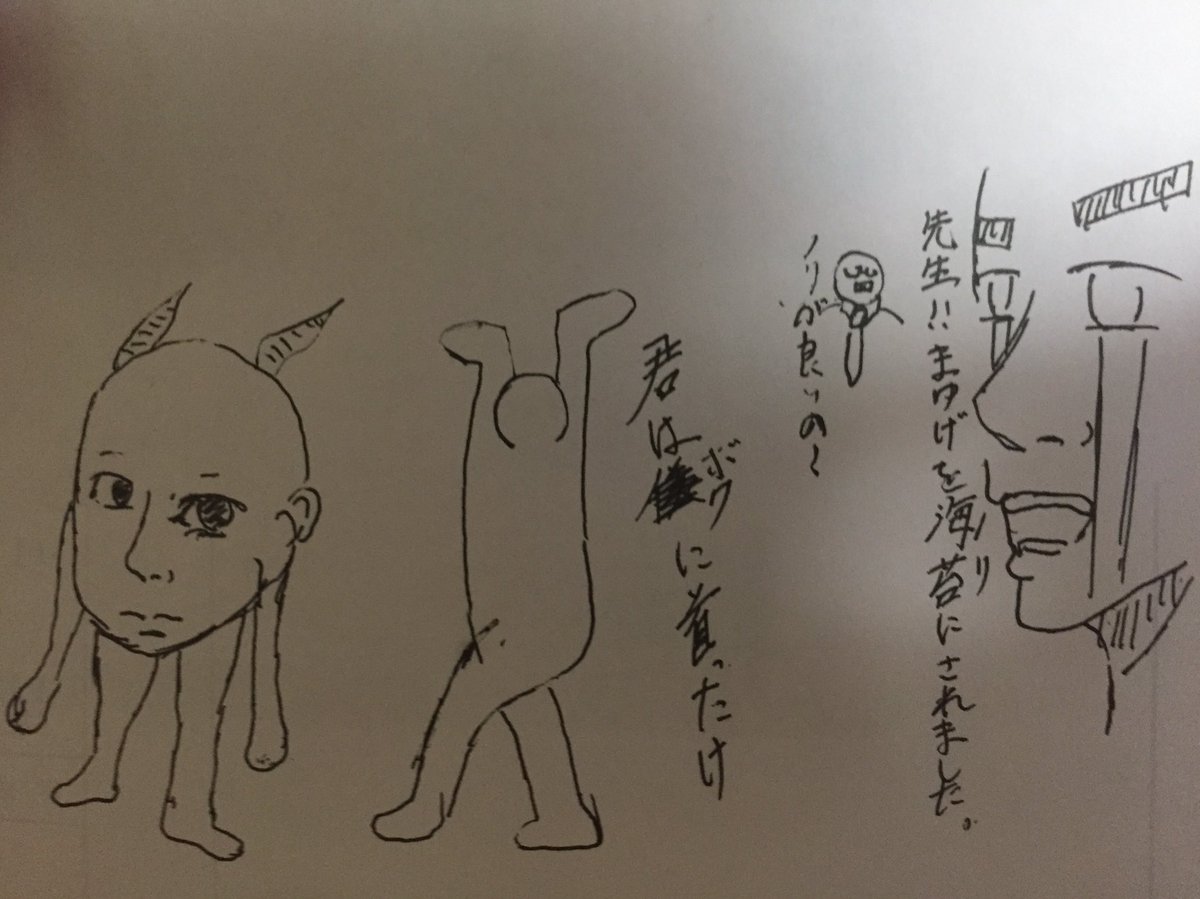 先生!!まゆげを海苔にされました。
ノリ
ノリが良いの〜
君は僕に首ったけ
ボク